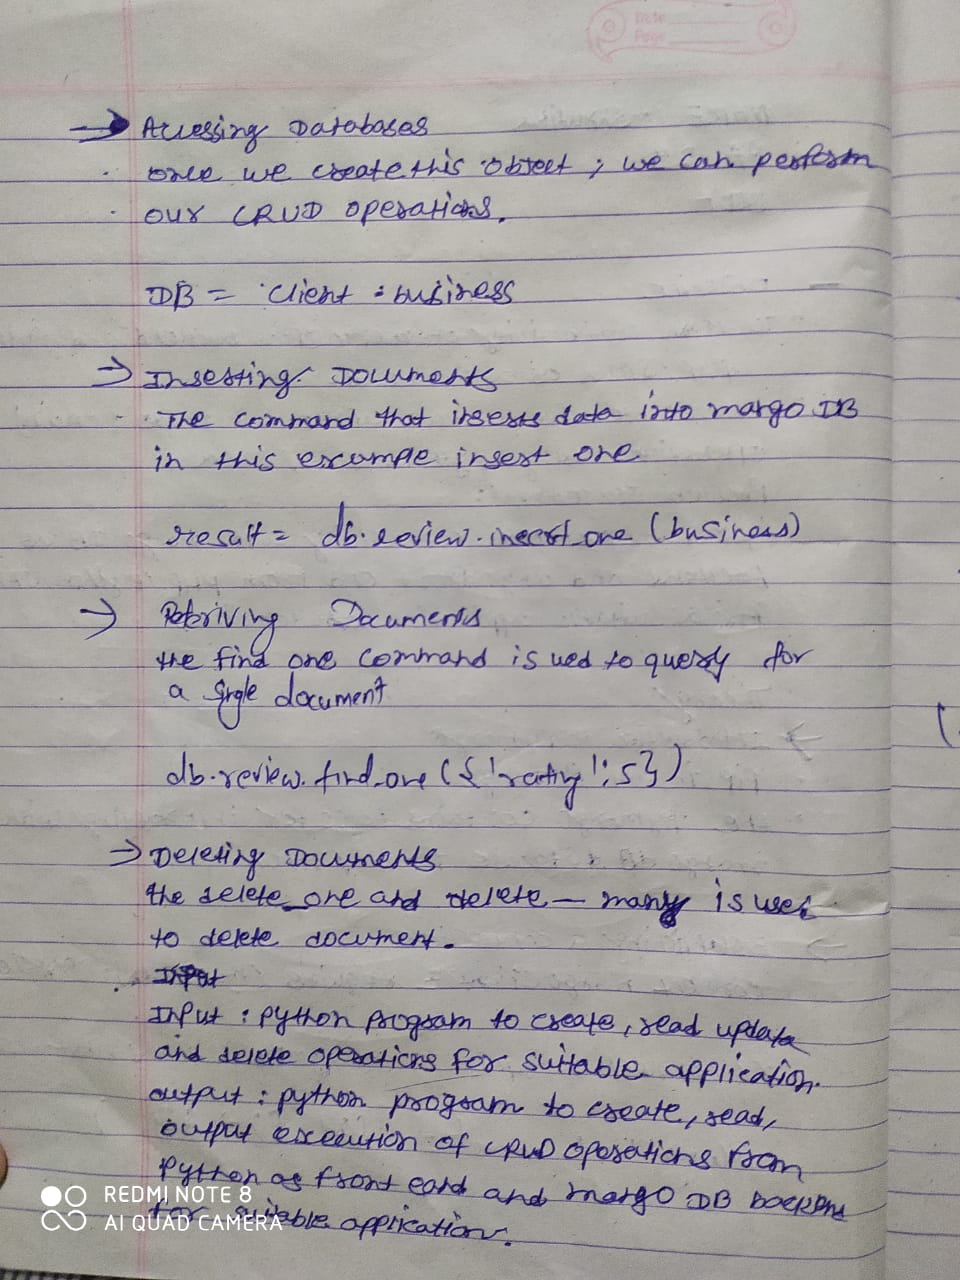 Date
Page
→ Accessing Databases
once we create this object, we can perform
our CRUD operations.
DB = client.business
→ Inserting Documents
The command that inserts data into mango DB
in this example insert one
result = db.review.insert_one (business)
→ Retriving Documents
the find one command is used to query for
a single document
db.review.find_one ({'rating':5})
→ Deleting Documents
the delete_one and delete_many is used
to delete document.
Input
Input : python program to create, read update
and delete operations for suitable application.
output : python program to create, read,
output execution of CRUD operations from
python as front eand and mango DB backend
for suitable application.
REDMI NOTE 8
AI QUAD CAMERA